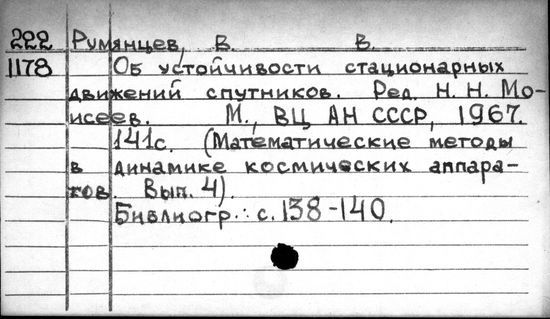 222 Румянцев, В. В.
1178 Об устойчивости стационарных
движений спутников. Ред. Н. Н. Мо-
исеев. М., ВЦ АН СССР, 1967.
141с. (Математические методы
в динамике космических аппара-
тов. Вып. 4).
Библиогр.: с. 138-140.